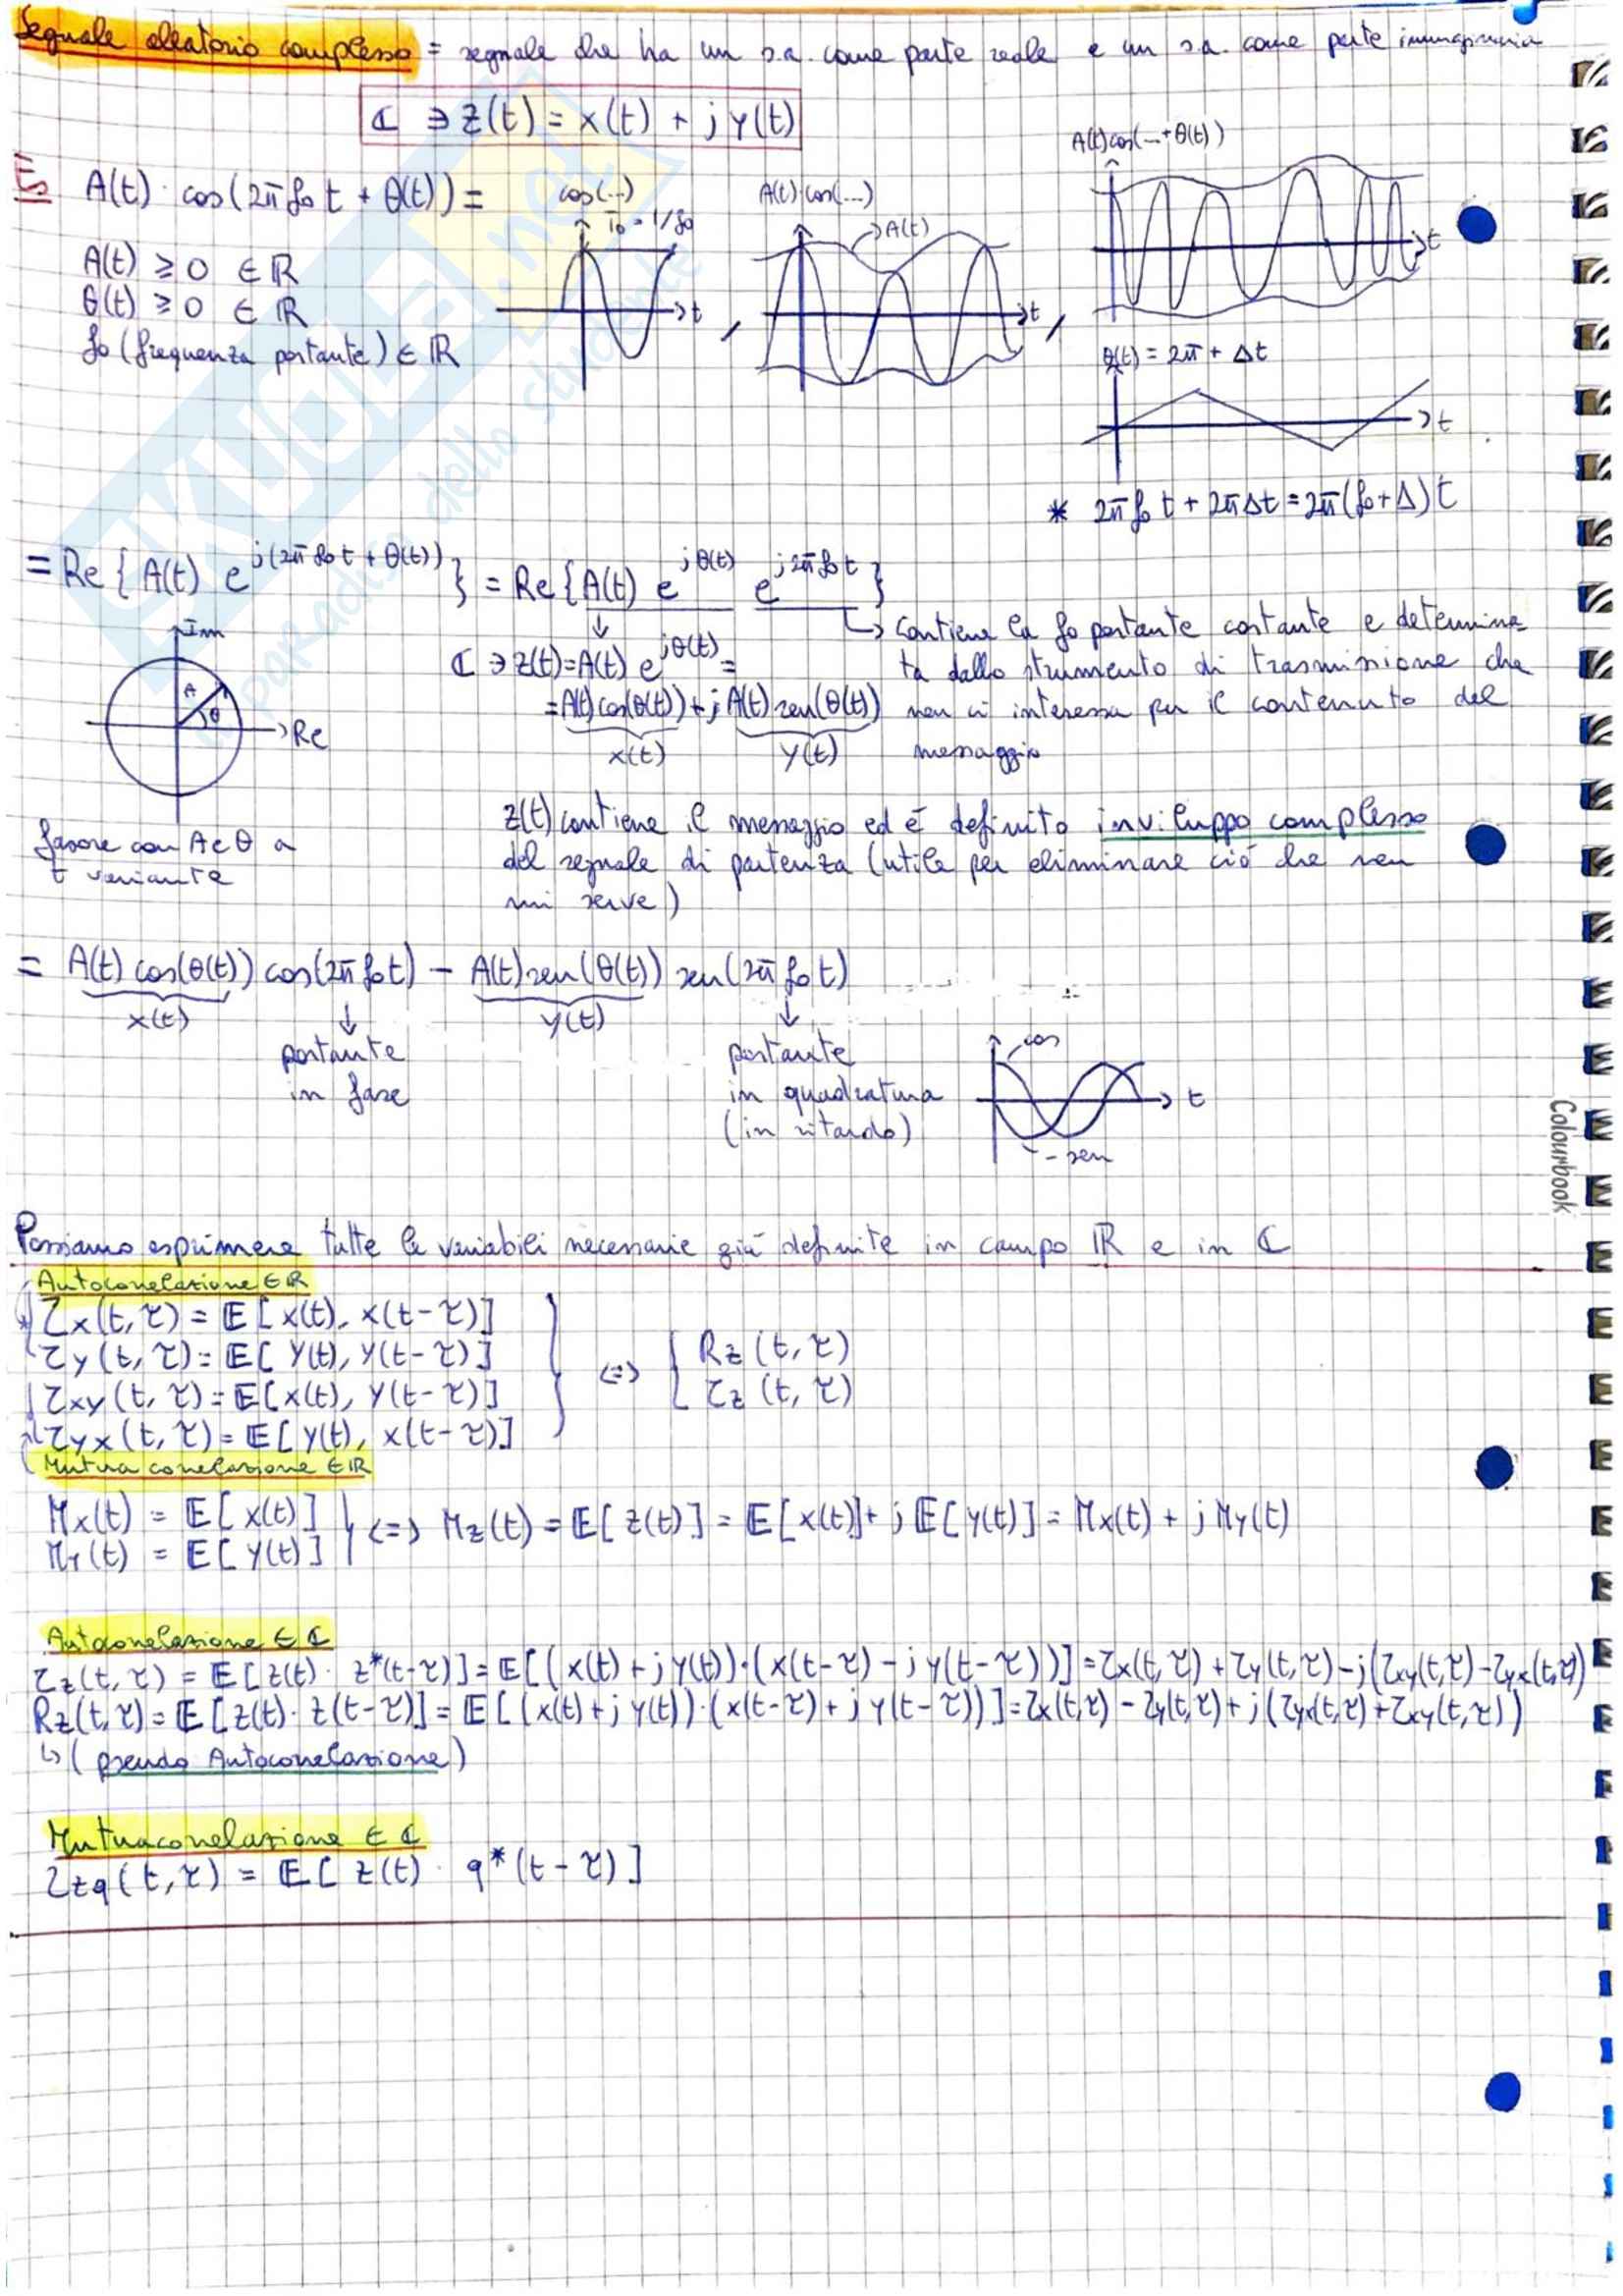 Segnale aleatorio complesso = segnale che ha un s.a. come parte reale e un s.a. come parte immaginaria
ℂ ∋ z(t) = x(t) + j y(t)
Es A(t) · cos(2π f₀ t + θ(t)) =
A(t) ≥ 0 ∈ ℝ
θ(t) ≥ 0 ∈ ℝ
f₀ (frequenza portante) ∈ ℝ
cos(...)
T₀ = 1/f₀
t
,
A(t)·cos(....)
A(t)
t
,
A(t)cos(...+θ(t))
t
θ(t) = 2π + Δt
t
* 2π f₀ t + 2πΔt = 2π(f₀+Δ)t
= Re { A(t) e^{j(2π f₀ t + θ(t))} } = Re { A(t) e^{jθ(t)} e^{j2π f₀ t} }
Im
A
θ
Re
fasore con A e θ a
t variante
ℂ ∋ z(t) = A(t) e^{jθ(t)} =
= A(t) cos(θ(t)) + j A(t) sen(θ(t))
x(t) y(t)
↳ contiene la f₀ portante costante e determina-
ta dallo strumento di trasmissione che
non ci interessa per il contenuto del
messaggio
z(t) contiene il messaggio ed è definito inviluppo complesso
del segnale di partenza (utile per eliminare ciò che non
mi serve)
= A(t) cos(θ(t)) cos(2π f₀ t) − A(t) sen(θ(t)) sen(2π f₀ t)
x(t) y(t)
portante
in fase
portante
in quadratura
(in ritardo)
cos
t
-sen
Colourbook
Possiamo esprimere tutte le variabili necessarie già definite in campo ℝ e in ℂ
Autocorrelazione ∈ ℝ
τx(t, τ) = E[x(t), x(t-τ)]
τy(t, τ) = E[y(t), y(t-τ)]
τxy(t, τ) = E[x(t), y(t-τ)]
τyx(t, τ) = E[y(t), x(t-τ)]
Mutua correlazione ∈ ℝ
<=>
Rz(t, τ)
τz(t, τ)
Mx(t) = E[x(t)]
My(t) = E[y(t)]
<=> Mz(t) = E[z(t)] = E[x(t)] + j E[y(t)] = Mx(t) + j My(t)
Autocorrelazione ∈ ℂ
τz(t, τ) = E[z(t) · z*(t-τ)] = E[(x(t) + j y(t))·(x(t-τ) − j y(t-τ))] = τx(t, τ) + τy(t, τ) − j(τxy(t, τ) − τyx(t, τ))
Rz(t, τ) = E[z(t) · z(t-τ)] = E[(x(t) + j y(t))·(x(t-τ) + j y(t-τ))] = τx(t, τ) − τy(t, τ) + j(τyx(t, τ) + τxy(t, τ))
↳ (pseudo Autocorrelazione)
Mutuacorrelazione ∈ ℂ
τzq(t, τ) = E[z(t) · q*(t-τ)]
SKUOLA.net
il paradiso dello studente